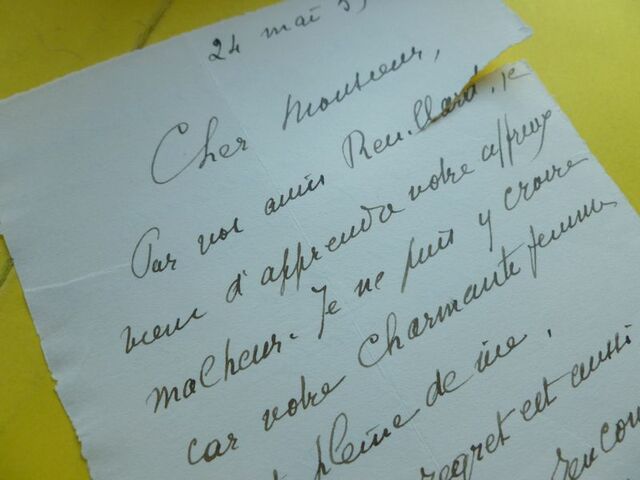 24 mai 5
Cher Monsieur,
Par vos amis Reuillard, je
viens d'apprendre votre affreux
malheur. Je ne puis y croire
car votre charmante femme
pleine de vie,
regret est aussi